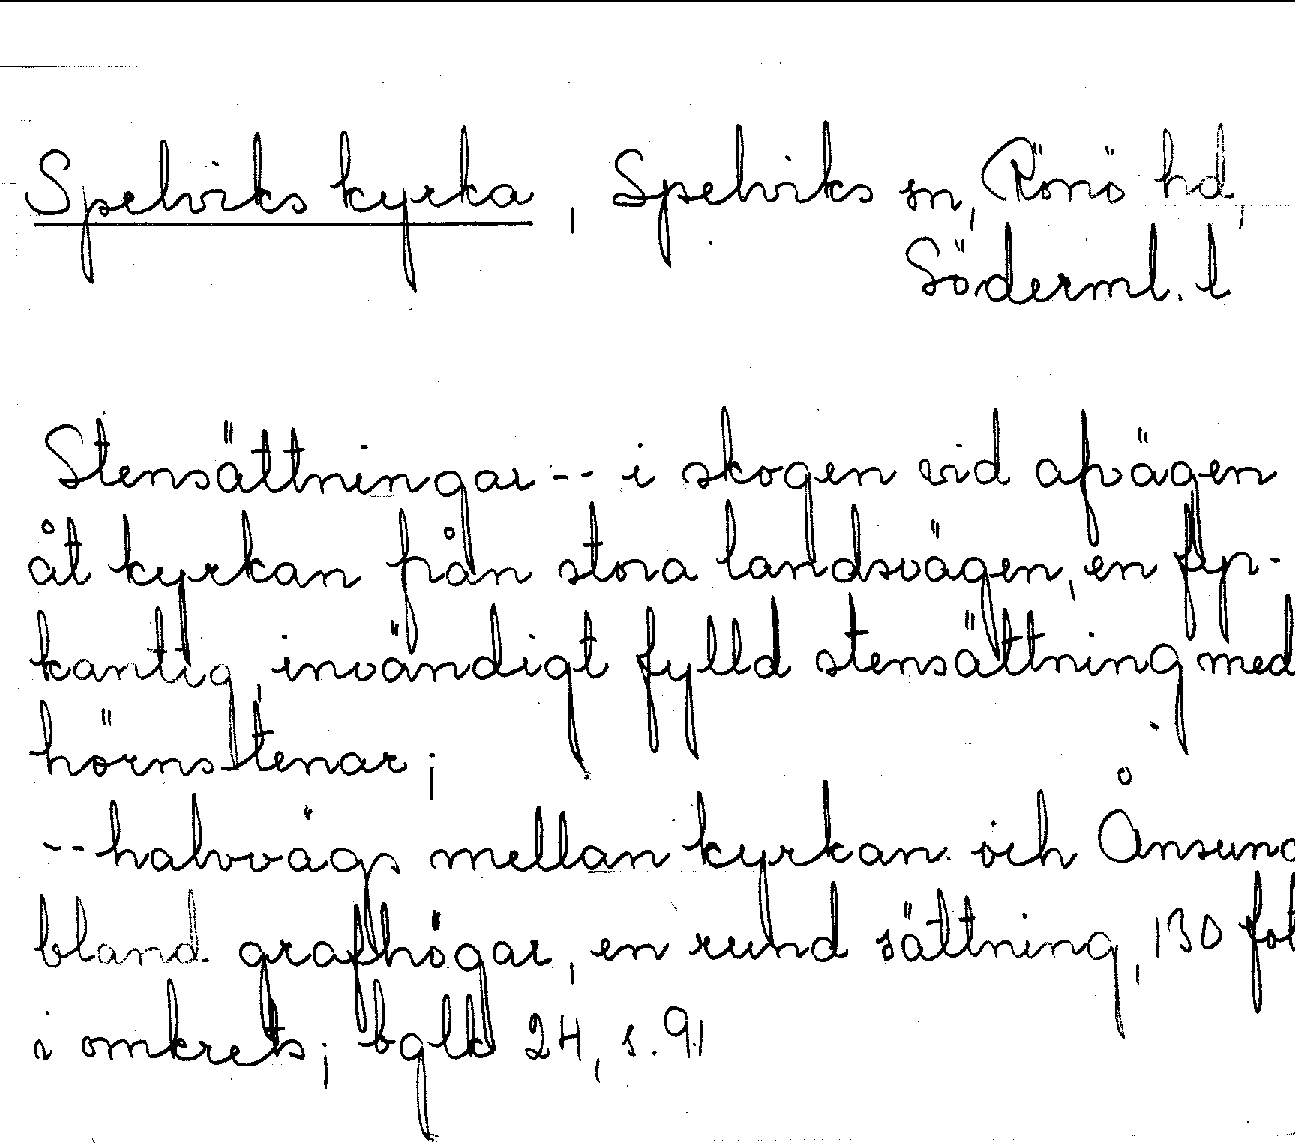 Spelviks kyrka, Spelviks sn, Rönö hd,
Söderml. l
Stensättningar -- i skogen vid afvägen
åt kyrkan från stora landsvägen, en fyr-
kantig, invändigt fylld stensättning med
hörnstenar;
-- halvvägs mellan kyrkan och Ånsund
bland grafhögar, en rund sättning, 130 fot
i omkrets; bglk 24, s. 91